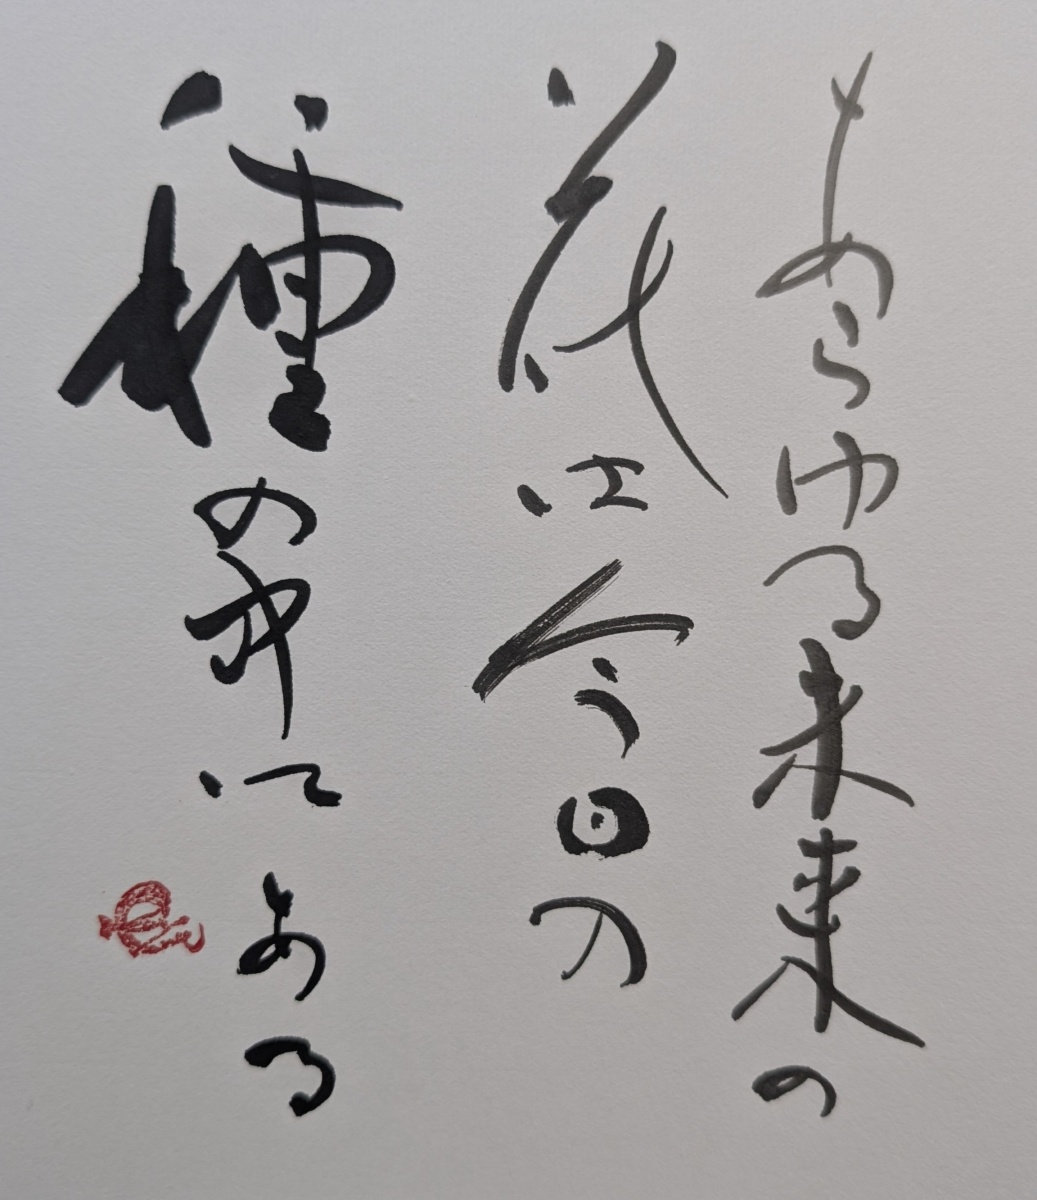 あらゆる未来の
花は今日の
種の中にある